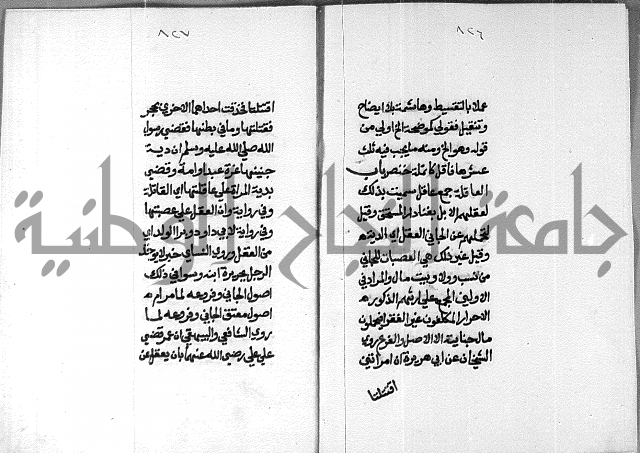 ٨٢٦
عملا بالتقسيط وهاشمة بلا ايضاح
وتنقيل فقولي كموضحة الخ اولى من
قوله وهو الخ ومنه ما يجب فيه ثلث
عشرها فاقل كانملة خنصر باب
العاقلة جمع عاقل سميت بذلك
لعقلهم الابل بفناء دار المستحق وقيل
لتحملهم عن الجاني العقل اي الدية
وقيل غير ذلك هي العصبات للجاني
من نسب وولا وبيت مال والمراد في
الاوليين على ارثهم الذكور
الاحرار المكلفون غير الفقير يتحملون
مال جنايته الا الاصل والفرع روى
الشيخان عن ابي هريرة ان امرأتين
اقتتلتا
٨٢٧
اقتتلتا فحذفت احداهما الاخرى بحجر
فقتلتها وما في بطنها فقضى رسول
الله صلى الله عليه وسلم ان دية
جنينها غرة عبد او امة وقضى
بدية المراة على عاقلتها اي القاتلة
وفي رواية وان العقل على عصبتها
وفي رواية لابي داود وبرا الولد اي
من العقل وروى النساي خبر لا يوخذ
الرجل بجريرة ابنه وسوا في ذلك
اصول الجاني وفروعه لما مر
اصول معتق الجاني وفروعه لما
روى الشافعي والبيهقي ان عمر قضى
على علي رضي الله عنهما بان يعقل عن
جامعة النجاح الوطنية